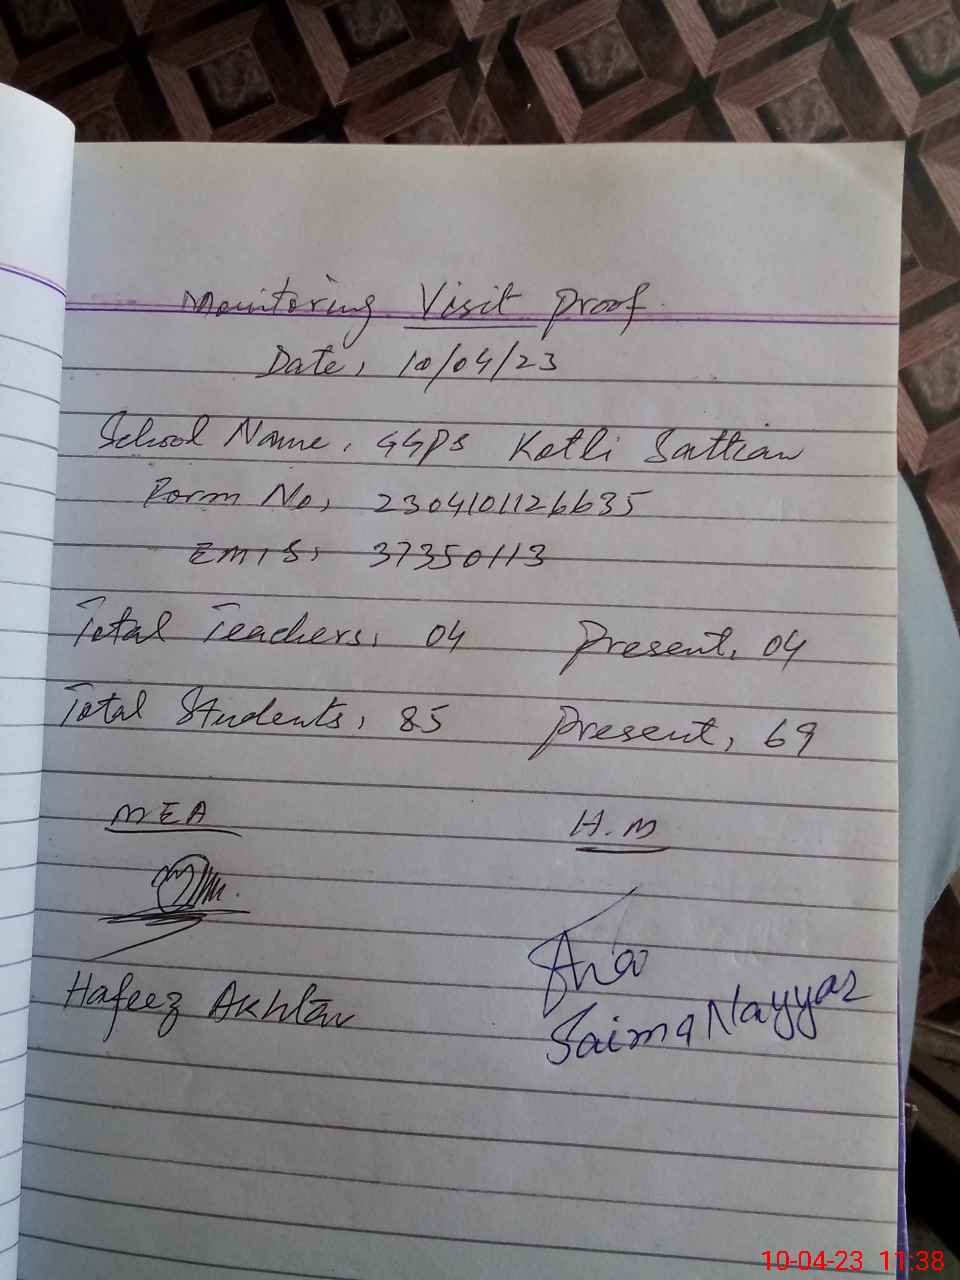 Monitoring Visit Proof
Date, 10/04/23
School Name, GGPS Kotli Sattian
Form No, 2304101126635
EMIS, 37350113
Total Teachers, 04 Present, 04
Total Students, 85 Present, 69
MEA H.M
Hafeez Akhtar
Saima Nayyar
10-04-23 11:38